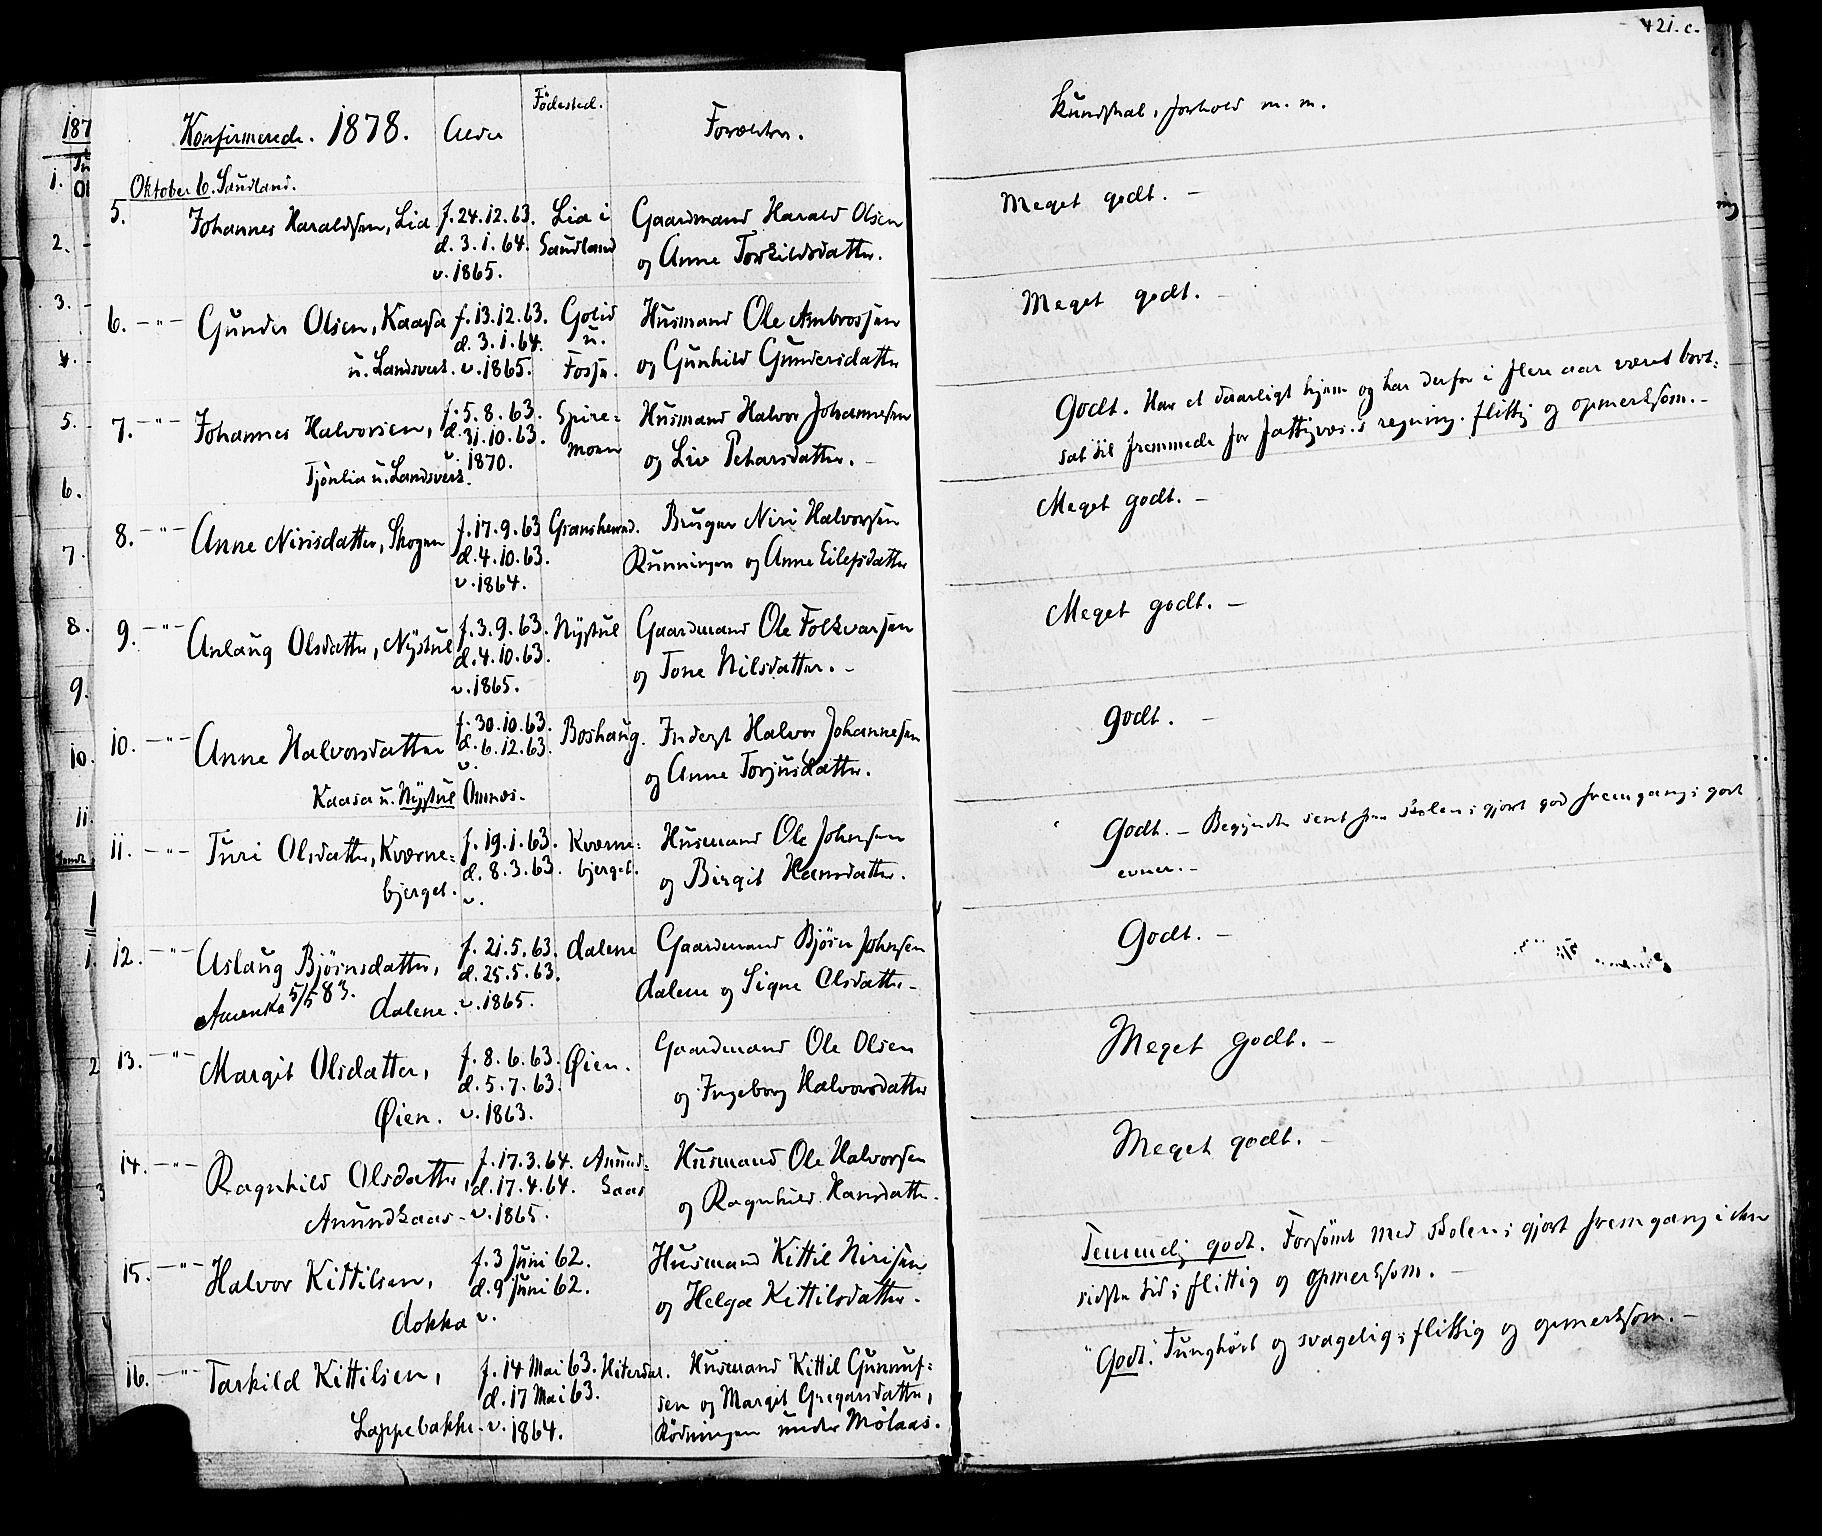 421.c.
Konfirmerede. 1878. Alder Födested. Forældre. Kundskab, forhold m. m.
Oktober 6. Saudland.
5. Johannes Haraldsen, Lia f. 24.12.63. Lia i Gaardmand Harald Olsen Meget godt. –
d. 3.1.64. Saudland og Anne Torkildsdatter.
v. 1865.
6. –"– Gunder Olsen, Kaasa f. 13.12.63. Golid Husmand Ole Ambrossen Meget godt. –
d. 3.1.64. u. og Gunhild Gundersdatter
u. Landsverk. v. 1865. Fossu.
7. –"– Johannes Halvorsen, f. 5.8.63. Spire= Husmand Halvor Johannesen Godt. Har et daarligt hjem og har derfor i flere aar været bort=
d. 31.10.63. moen og Liv Petersdatter. – sat til fremmede for fattigvæs.s regning. flittig og opmerksom. –
Tjönlia u. Landsverk. v. 1870.
8. –"– Anne Nirisdatter, Skogen f. 17.9.63 Gransherred. Bruger Niri Halvorsen Meget godt. –
d. 4.10.63. Runningen og Anne Eilefsdatter
v. 1864.
9. –"– Anlaug Olsdatter, Nystul f. 3.9.63. Nystul Gaardmand Ole Folkvarsen Meget godt. –
d. 4.10.63. og Tone Nilsdatter. –
v. 1865.
10. –"– Anne Halvorsdatter f. 30.10.63. Boshaug. Inderst Halvor Johannesen Godt. –
d. 6.12.63. og Anne Torjusdatter.
v.
Kaasa u. Nystul
11. –"– Turi Olsdatter, Kværne= f. 19.1.63. Kværne= Husmand Ole Johnsen Godt. – Begyndte sent paa skolen; gjort god fremgang; godt
bjerget. d. 8.3.63. bjerget. og Birgit Hansdatter. evner. –
v.
12. –"– Aslaug Björnsdatter, f. 21.5.63. dalene Gaardmand Björn Johnsen Godt. –
d. 25.5.63. dalene og Signe Olsdatter –
Amerika 5/5 83. dalene. v. 1865.
13. –"– Margit Olsdatter, f. 8.6.63. Øien. Gaardmand Ole Olsen Meget godt. –
d. 5.7.63. og Ingeborg Halvorsdatter
Øien. v. 1863.
14. –"– Ragnhild Olsdatter, f. 17.3.64. Anund= Husmand Ole Halvorsen Meget godt. –
d. 17.4.64. saas og Ragnhild Hansdatter.
Anundsaas – v. 1865.
15. –"– Halvor Kittilsen, f. 3 Juni 62. Husmand Kittil Nirisen Temmelig godt. Forsömt med skolen; gjort fremgang i den
d. 9 Juni 62. og Helga Kittilsdatter. sidste tid; flittig og opmerksom. –
dokka v.
16. –"– Tarkild Kittilsen, f. 14 Mai 63. Hiterdal. Husmand Kittil Gunnuf= "Godt." Tunghört og svagelig; flittig og opmerksom. –
d. 17 Mai 63. sen og Margit Gregarsdatter,
Loppebakke – v. 1864. Rödningen under Molaas.